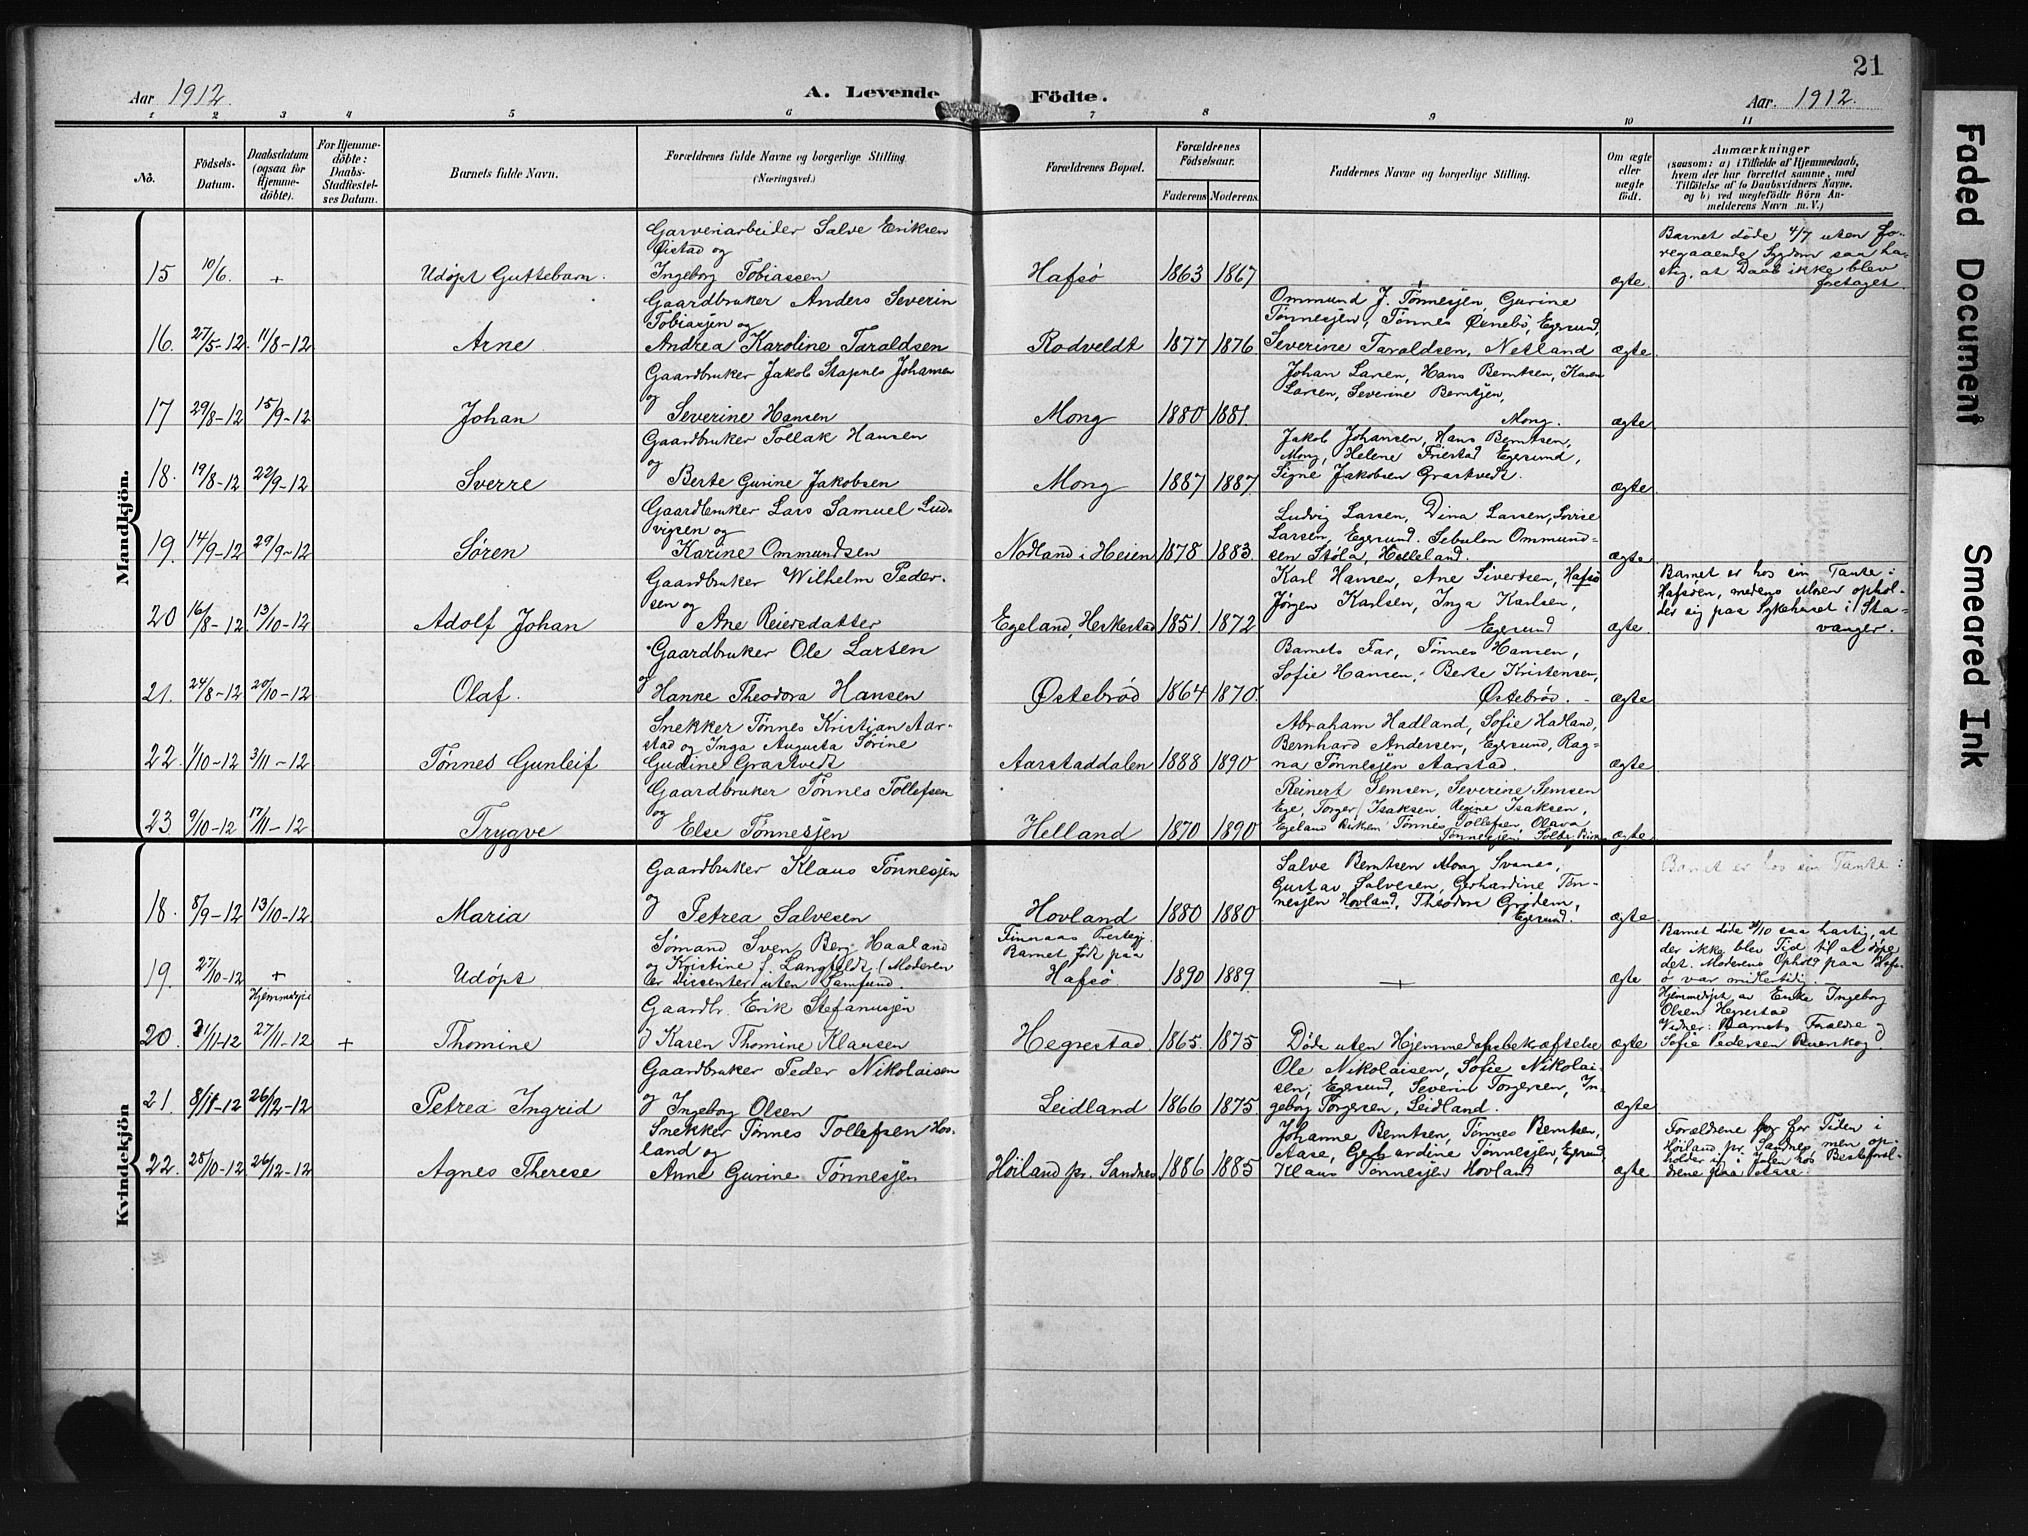 21
Aar 1912.
A. Levende Födte.
Aar. 1912.
1 2 3 4 5 6 7 8 9 10 11
No.
Födsels-Datum.
Daabsdatum (ogsaa for Hjemme-döbte).
For Hjemme-döbte: Daabs-Stadfæstel-ses Datum.
Barnets fulde Navn.
Forældrenes fulde Navne og borgerlige Stilling
(Næringsvei.)
Forældrenes Bopæl.
Forældrenes Födselsaar.
Faderens Moderens
Faddernes Navne og borgerlige Stilling.
Om ægte eller uægte födt.
Anmærkninger
(saasom: a) i Tilfælde af Hjemmedaab,
hvem der har forrettet samme, med
Tilföielse af to Daabsvidners Navne.
og b) ved uægtefödte Börn An-
melderens Navn m. V.)
Mandkjön.
15 10/6. + Udøpt Guttebarn.
Garveriarbeider Salve Eriksen
Øistad og
Ingeborg Tobiassen
Hafsø 1863 1867 + ægte.
Barnet døde 4/7 uten fo-
regaaende Sygdom saa ha-
stig, at Daab ikke blev
foretaget.
16. 27/5-12. 11/8-12 Arne
Gaardbruker Anders Severin
Tobiasjen og
Andrea Karoline Taraldsen
Rodveldt 1877 1876
Ommund J. Tønnesjen, Gurine
Tønnesjen, Tønnes Ørnebø, Egersund,
Severine Taraldsen, Netland ægte.
17 29/8-12 15/9-12 Johan
Gaardbruker Jakob Stapnes Johansen
og
Severine Hansen
Mong 1880 1881.
Johan Larsen, Hans Berntsen, Karen
Larsen, Severine Berntsjen,
Mong. ægte.
18. 19/8-12 22/9-12 Sverre
Gaardbruker Tollak Hansen
og
Berte Gurine Jakobsen
Mong 1887 1887.
Jakob Johansen, Hans Berntsen,
Mong, Helene Friestad Egersund,
Signe Jakobsen Grastvedt. ægte.
19. 14/9-12 29/9-12 Søren
Gaardbruker Lars Samuel Lud-
vigsen og
Karine Ommundsen
Nodland i Heien 1878 1883
Ludvig Larsen, Dina Larsen, Lovise
Larsen, Egersund. Sebulen Ommund-
sen Støla, Helleland. ægte.
20 16/8-12. 13/10-12 Adolf Johan
Gaardbruker Wilhelm Peder-
sen og
Ane Reiersdatter
Egeland, Heskestad 1851. 1872
Karl Hansen, Ane Sivertsen, Hafsø
Jørgen Karlsen, Inga Karlsen,
Egersund ægte.
Barnet er hos sin Tante i
Hafsøen, medens Moren ophol-
der sig paa Sykehuset i Sta-
vanger.
21. 24/8-12 20/10-12 Olaf.
Gaardbruker Ole Larsen
og
Hanne Theodora Hansen
Østebrød 1864 1870.
Barnets Far, Tønnes Hansen,
Sofie Hansen, Berte Kristensen,
Østebrød. ægte
22. 1/10-12 3/11-12 Tønnes Gunleif
Snekker Tønnes Kristian Aar-
stad og Inga Augusta Sørine
Gudine Grastvedt
Aarstaddalen 1888 1890
Abraham Hadland, Sofie Hadland,
Bernhard Andersen, Egersund, Rag-
na Tønnesjen Aarstad. ægte
23 9/10-12 17/11-12 Trygve
Gaardbruker Tønnes Tollefsen
og
Else Tønnesjen
Helland 1870 1890
Reinert Semsen, Severine Semsen
Ege, Torger Isaksen, Regine Isaksen,
Egeland Birkem Tønnes Tollefsen, Olava
Tønnesjen, ægte
Kvindekjön
18. 8/9-12 13/10-12 Maria
Gaardbruker Klaus Tønnesjen
og
Petrea Salvesen
Hovland 1880 1880
Salve Berntsen Mong Svanes,
Gustav Salvesen, Gerhardine Tøn-
nesjen Hovland, Theodora Grødem,
Egersund. ægte
Barnet er hos sin Tante
19. 27/10-12 + Udøpt
Sømand Sven Berg Haaland
og Kristine f. Langfeldt (Moderen
er Dissenter uten Samfund.
Finnaas Prestegj.
Barnet født paa
Hafsø 1890 1889 + ægte
Barnet døde /10 saa hastig, at
der ikke blev Tid til at døpe
det. Moderens Ophold paa Hafs-
ø var midlertidig.
20. 21/11-12 Hjemmedøpt 27/11-12 + Thomine
Gaardbr. Erik Stefanusjen
og Karen Thomine Klausen
Hegrestad. 1865. 1875
Døde uten Hjemmedaabsbekræftelse ægte
Hjemmedøpt av Enke Ingeborg
Olsen Hegrestad
Vidner: Barnets Forældre og
Sofie Pedersen
21. 8/11-12 26/12-12 Petrea Ingrid
Gaardbruker Peder Nikolaisen
og Ingeborg Olsen
Leidland 1866 1875
Ole Nikolaisen, Sofie Nikolai-
sen, Egersund, Severin Torgersen, In-
geborg Torgersen, Leidland. ægte
22. 28/10-12 26/12-12 Agnes Therese
Snekker Tønnes Tollefsen Hov-
land og
Anne Gurine Tønnesjen
Høiland pr. Sandnes 1886 1885
Johanne Berntsen, Tønnes Berntsen,
Aase, Gerhardine Tønnesjen, Egersund,
Klaus Tønnesjen Hovland ægte
Forældrene bor for Tiden i
Høiland pr. Sandnes men op-
holder sig i Julen hos Besteforæl-
drene paa Aase.
Faded Document
Smeared Ink